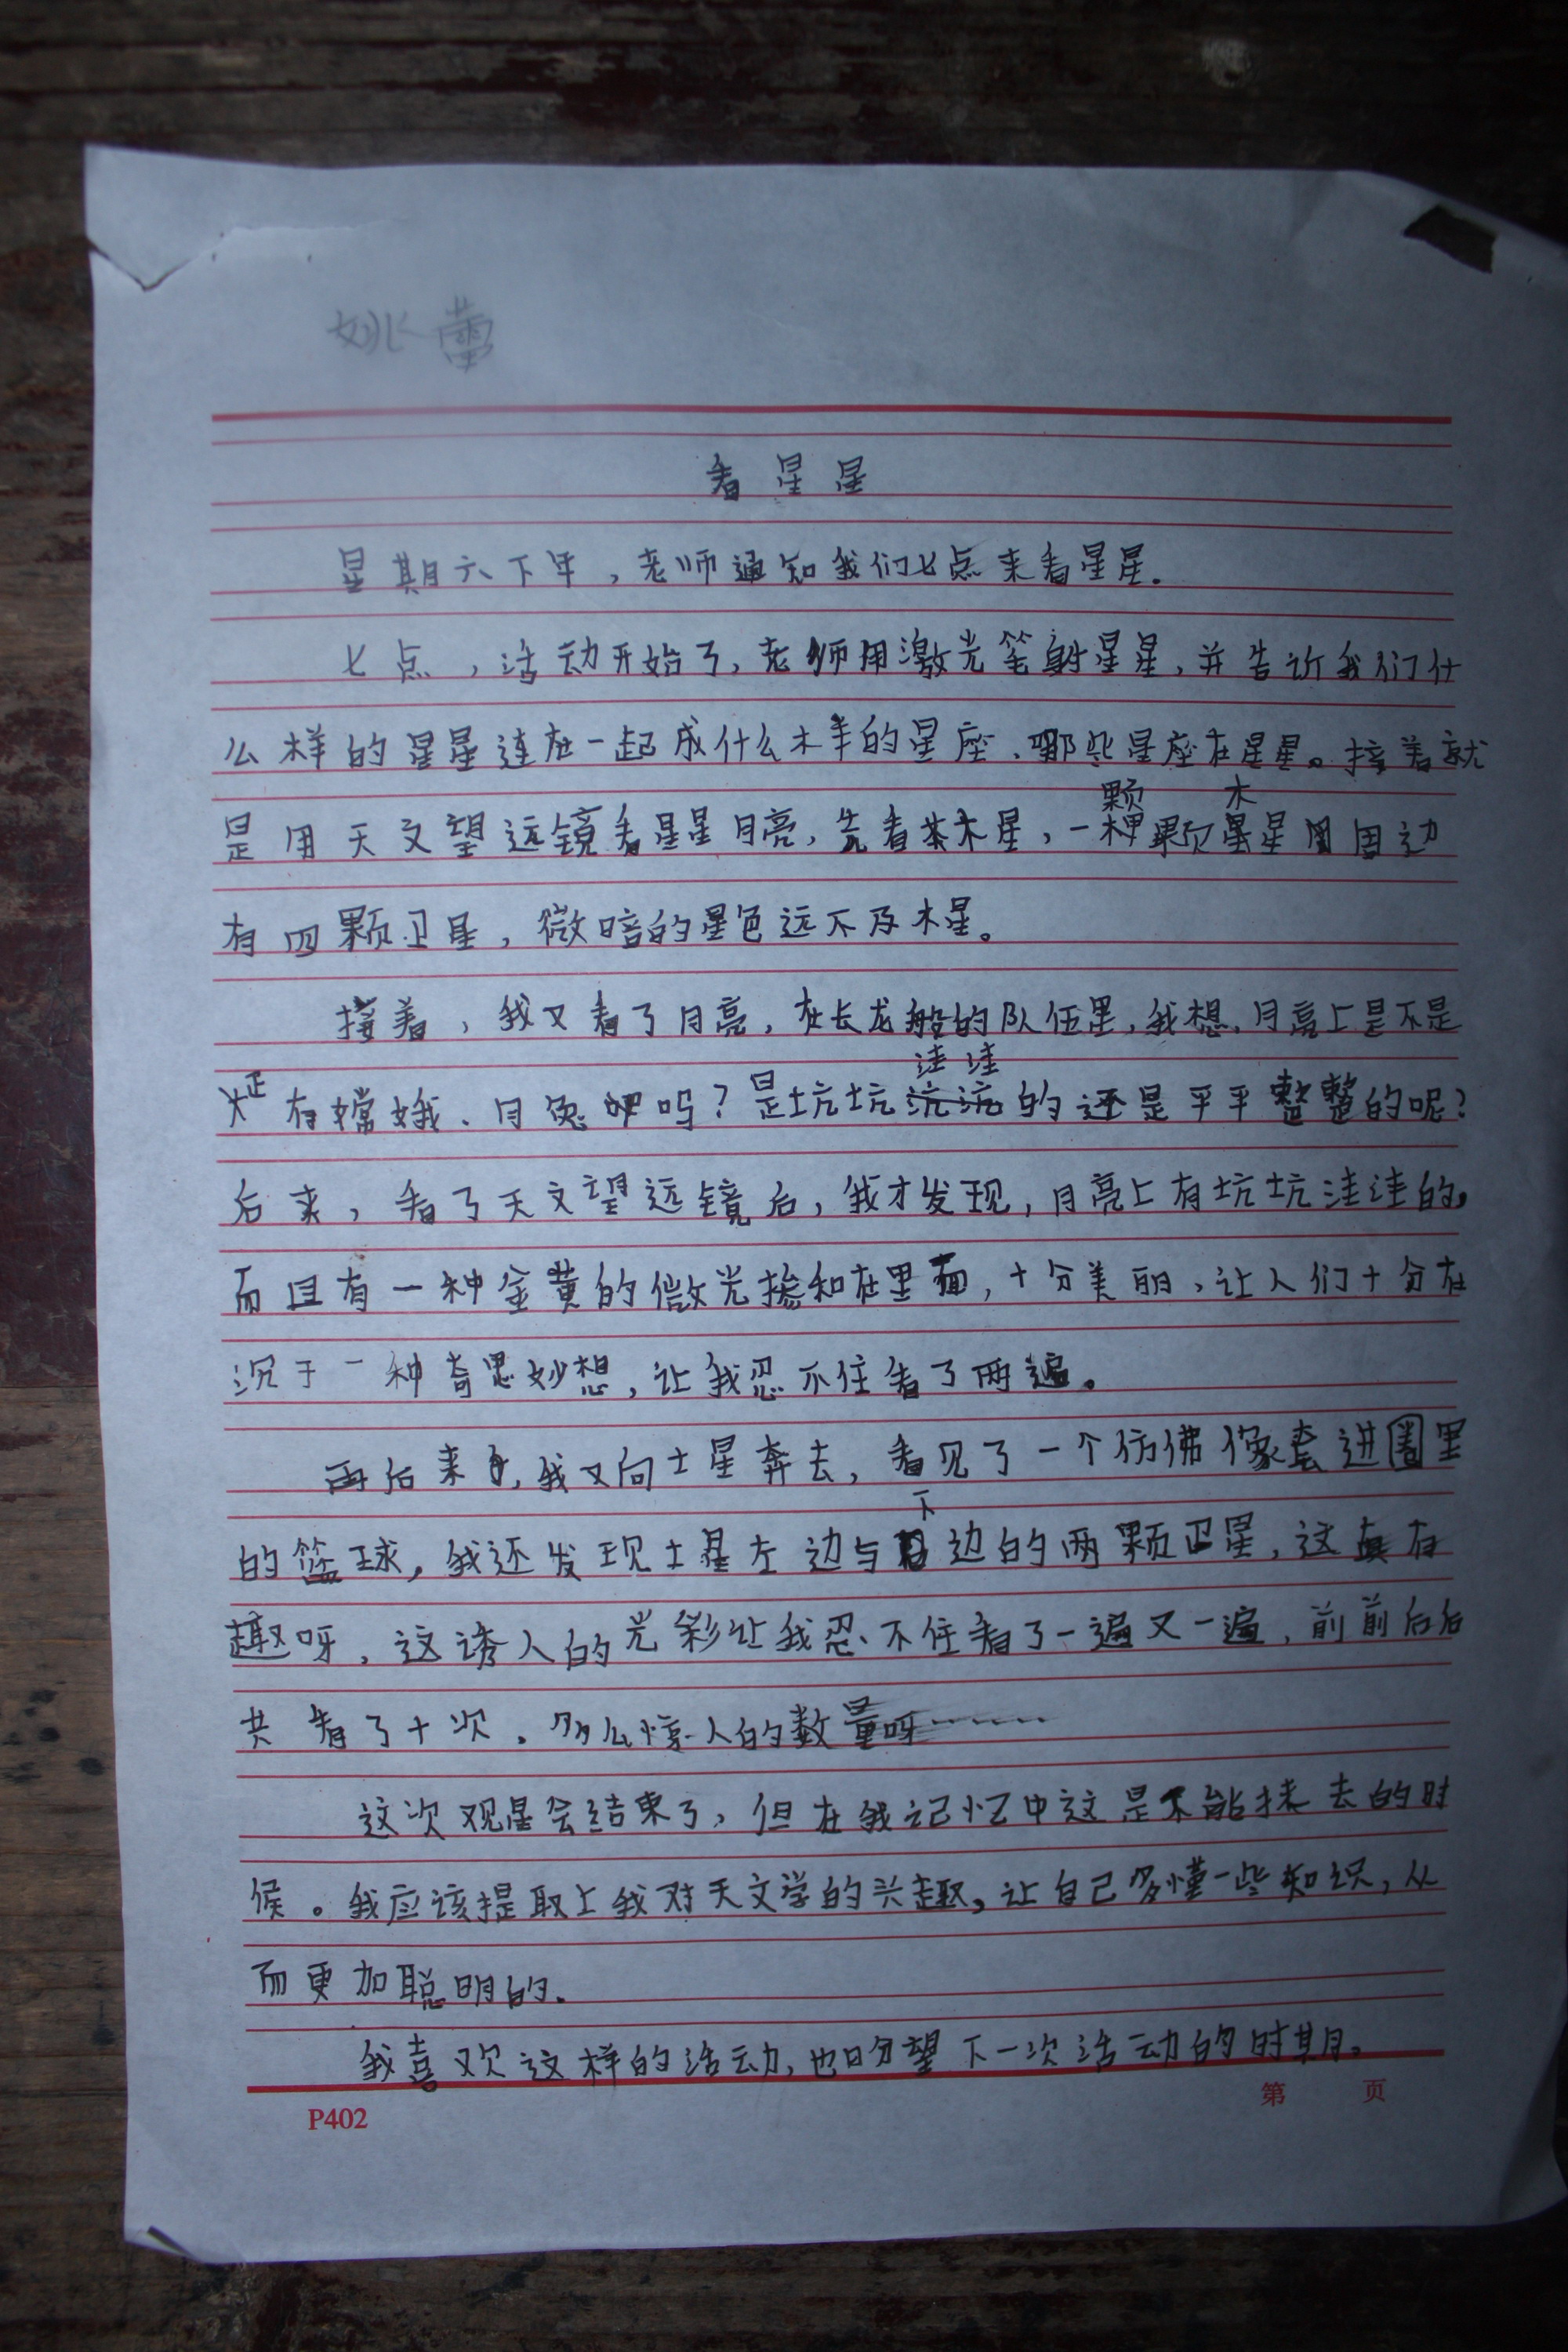 姚蕾
看星星
星期六下年，老师通知我们七点来看星星.
七点，活动开始了，老师用激光笔射星星，并告诉我们什
么样的星星连在一起成什么样的星座、哪些星座在星星。接着就
是用天文望远镜看星星月亮，先看木星，一颗木星周边
有四颗卫星，微暗的星色远不及木星。
接着，我又看了月亮，在长龙般的队伍里，我想，月亮上是不是
有嫦娥、月兔吗？是坑坑洼洼的还是平平整整的呢？
后来，看了天文望远镜后，我才发现，月亮上有坑坑洼洼的，
而且有一种金黄的微光掺和在里面，十分美丽，让人们十分在
沉于一种奇思妙想，让我忍不住看了两遍。
再后来，我又向土星奔去，看见了一个仿佛像套进圈里
的篮球，我还发现土星左边与下边的两颗卫星，这真有
趣呀，这诱人的光彩让我忍不住看了一遍又一遍，前前后后
共看了十次。多么惊人的数量呀……
这次观星会结束了，但在我记忆中这是不能抹去的时
候。我应该提取上我对天文学的兴趣，让自己多懂一些知识，从
而更加聪明的.
我喜欢这样的活动，也盼望下一次活动的时期。
P402
第 页